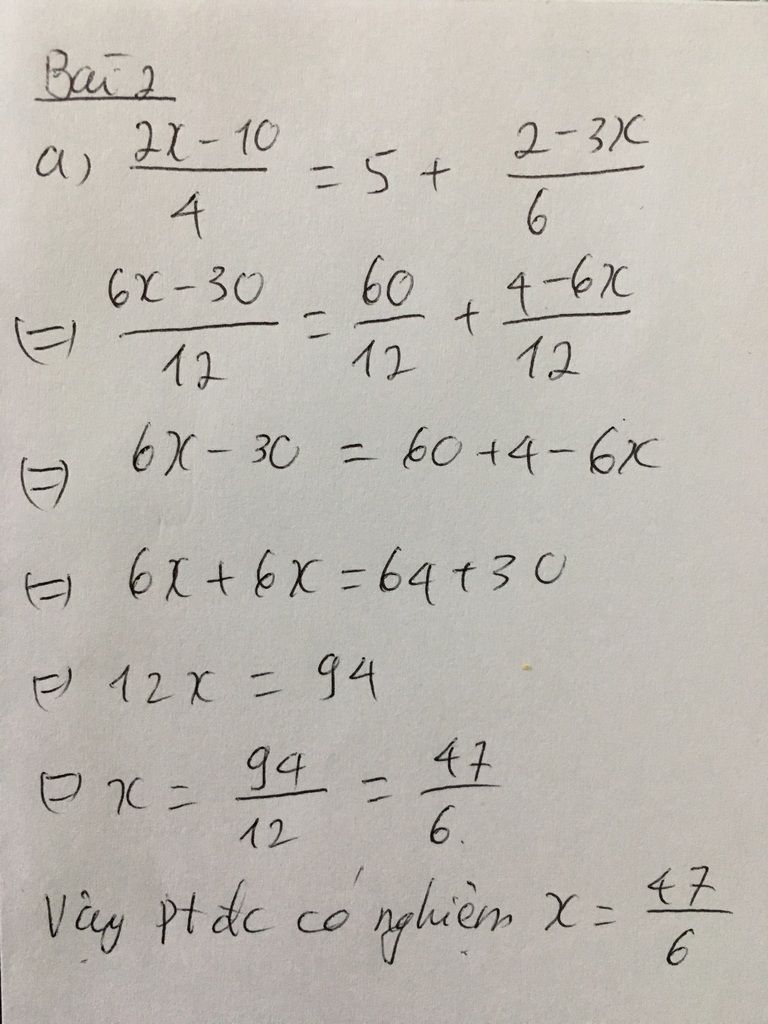 Bài 2
a) \frac{2x-10}{4} = 5 + \frac{2-3x}{6}
(=) \frac{6x-30}{12} = \frac{60}{12} + \frac{4-6x}{12}
(=) 6x - 30 = 60 + 4 - 6x
(=) 6x + 6x = 64 + 30
(=) 12x = 94
(=) x = \frac{94}{12} = \frac{47}{6}.
Vậy pt đc có nghiệm x = \frac{47}{6}